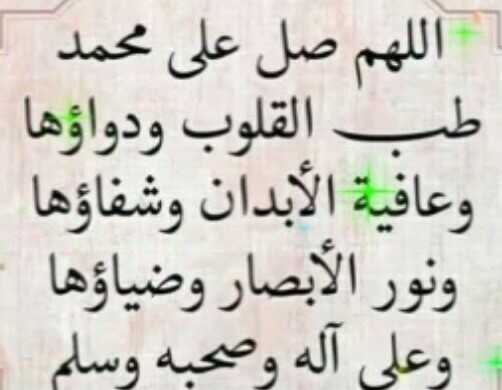 اللهم صل على محمد
طب القلوب ودواؤها
وعافية الأبدان وشفاؤها
ونور الأبصار وضياؤها
وعلى آله وصحبه وسلم